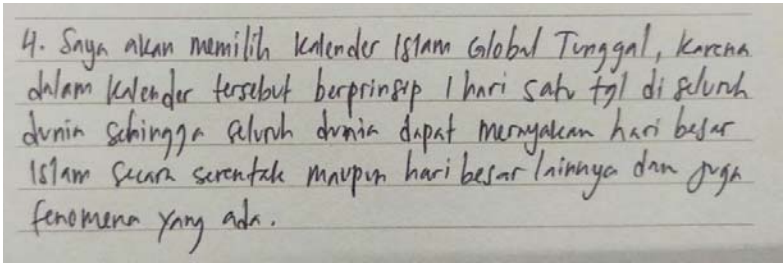 4. Saya akan memilih kalender Islam Global Tunggal, karena
dalam kalender tersebut berprinsip 1 hari satu tgl di seluruh
dunia sehingga seluruh dunia dapat merayakan hari besar
Islam secara serentak maupun hari besar lainnya dan juga
fenomena yang ada.